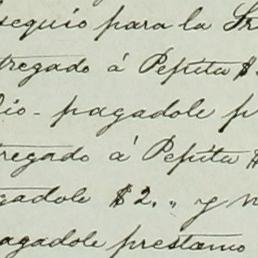 sequio para la Sr
tregado á Pepita $
io - pagadole p
tregado á Pepita $
gadole $2.,, y m
agadole prestamo